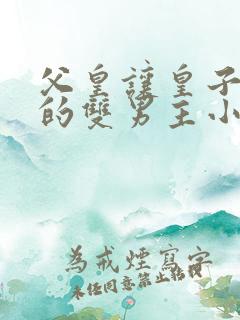 父皇讓皇子
的雙男主小
為戒煙寫字
未任同意禁止轉載